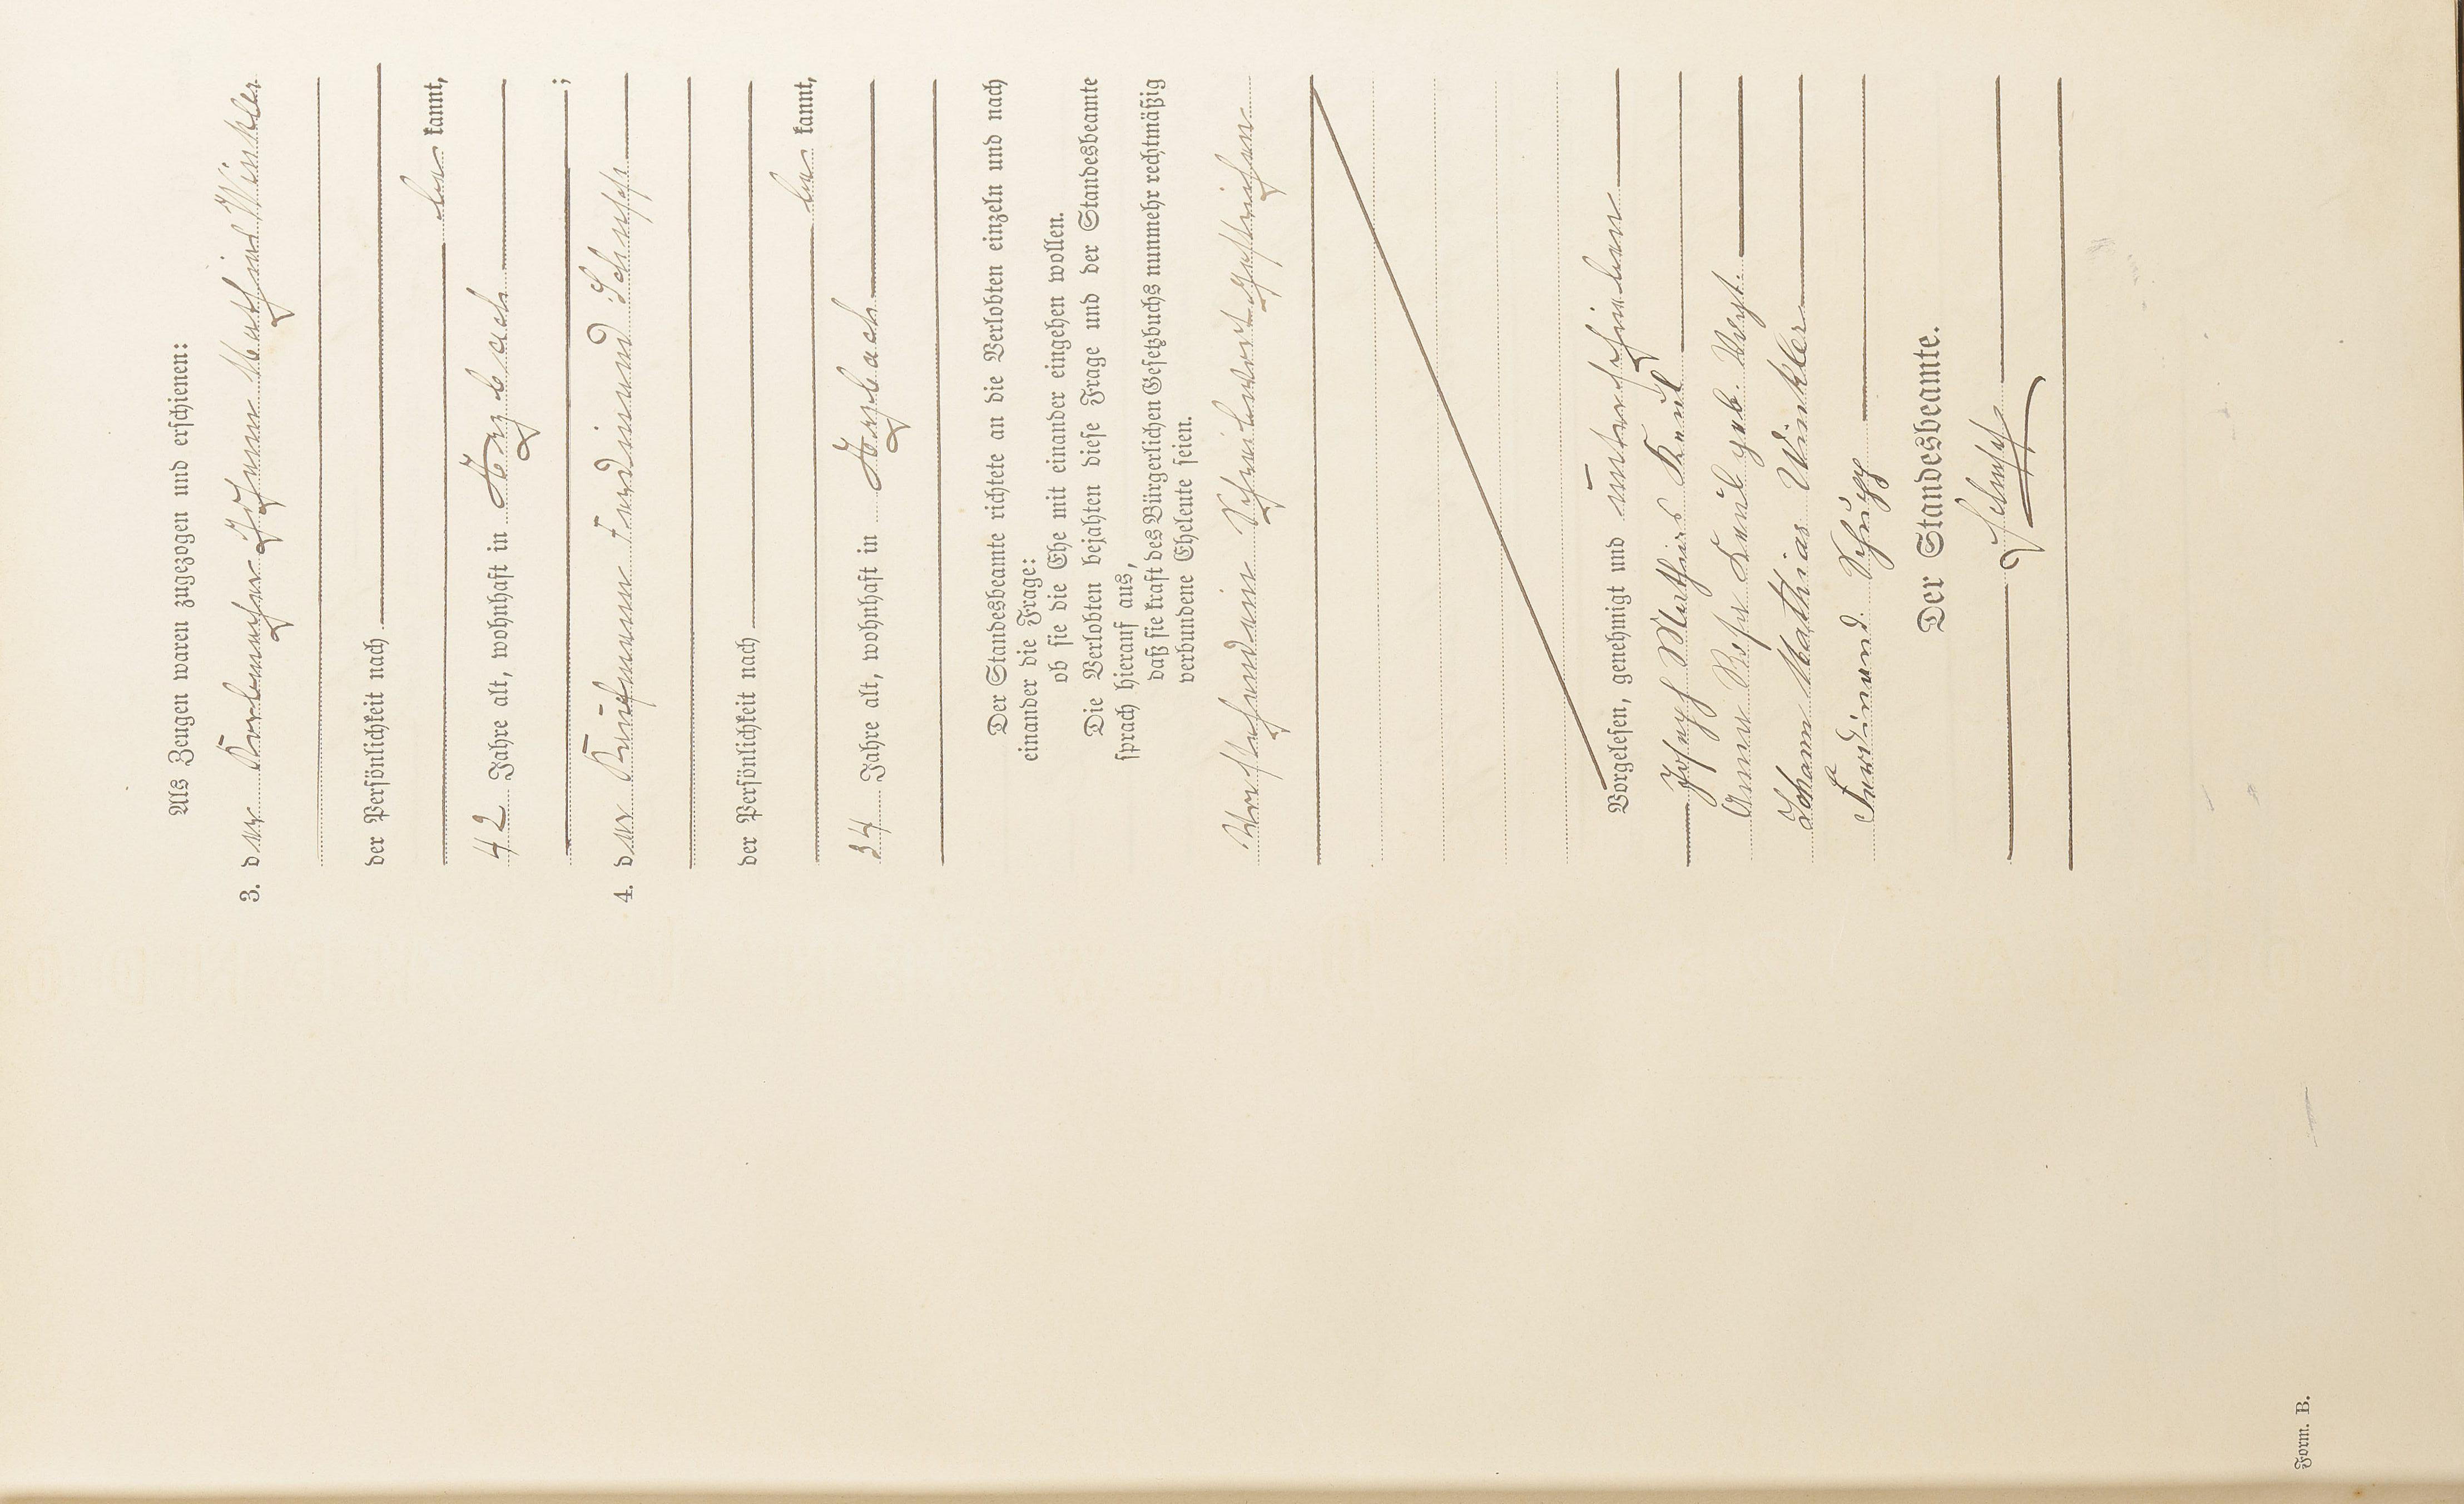 Als Zeugen waren zugezogen und erschienen:
3. der Korbmacher Johann Mathias Winkler
der Persönlichkeit nach
be kannt,
42 Jahre alt, wohnhaft in Herzbach
;
4. der Kaufmann Ferdinand Schupp
der Persönlichkeit nach
be kannt,
34 Jahre alt, wohnhaft in
Der Standesbeamte richtete an die Verlobten einzeln und nach
einander die Frage:
ob sie die Ehe mit einander eingehen wollen.
Die Verlobten bejahten diese Frage und der Standesbeamte
sprach hierauf aus,
daß sie kraft des Bürgerlichen Gesetzbuchs nunmehr rechtmäßig
verbundene Eheleute seien.
Vorstehend ein Schreibwort gestrichen
Vorgelesen, genehmigt und unterschrieben
Joseph Mathias Keul
Anna Rosa Keul geb.
Johann Mathias Winkler
Ferdinand Schupp
Der Standesbeamte.
Form. B.